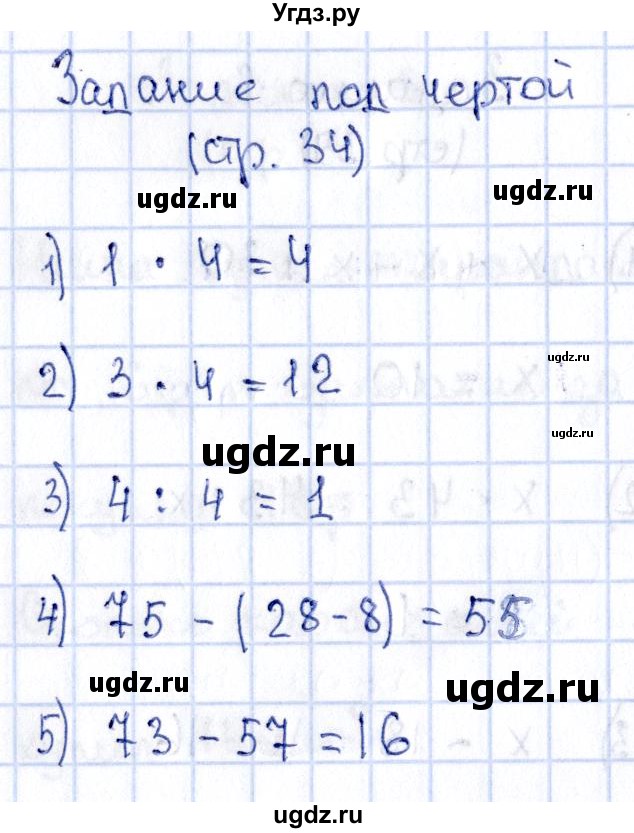 Угдз.ру
Задание под чертой
(стр. 34)
ugdz.ru
ugdz.ru
1) 1 · 4 = 4
ugdz.ru
2) 3 · 4 = 12
ugdz.ru
ugdz.ru
3) 4 : 4 = 1
4) 75 - (28-8) = 55
ugdz.ru
ugdz.ru
5) 73 - 57 = 16
ugdz.ru